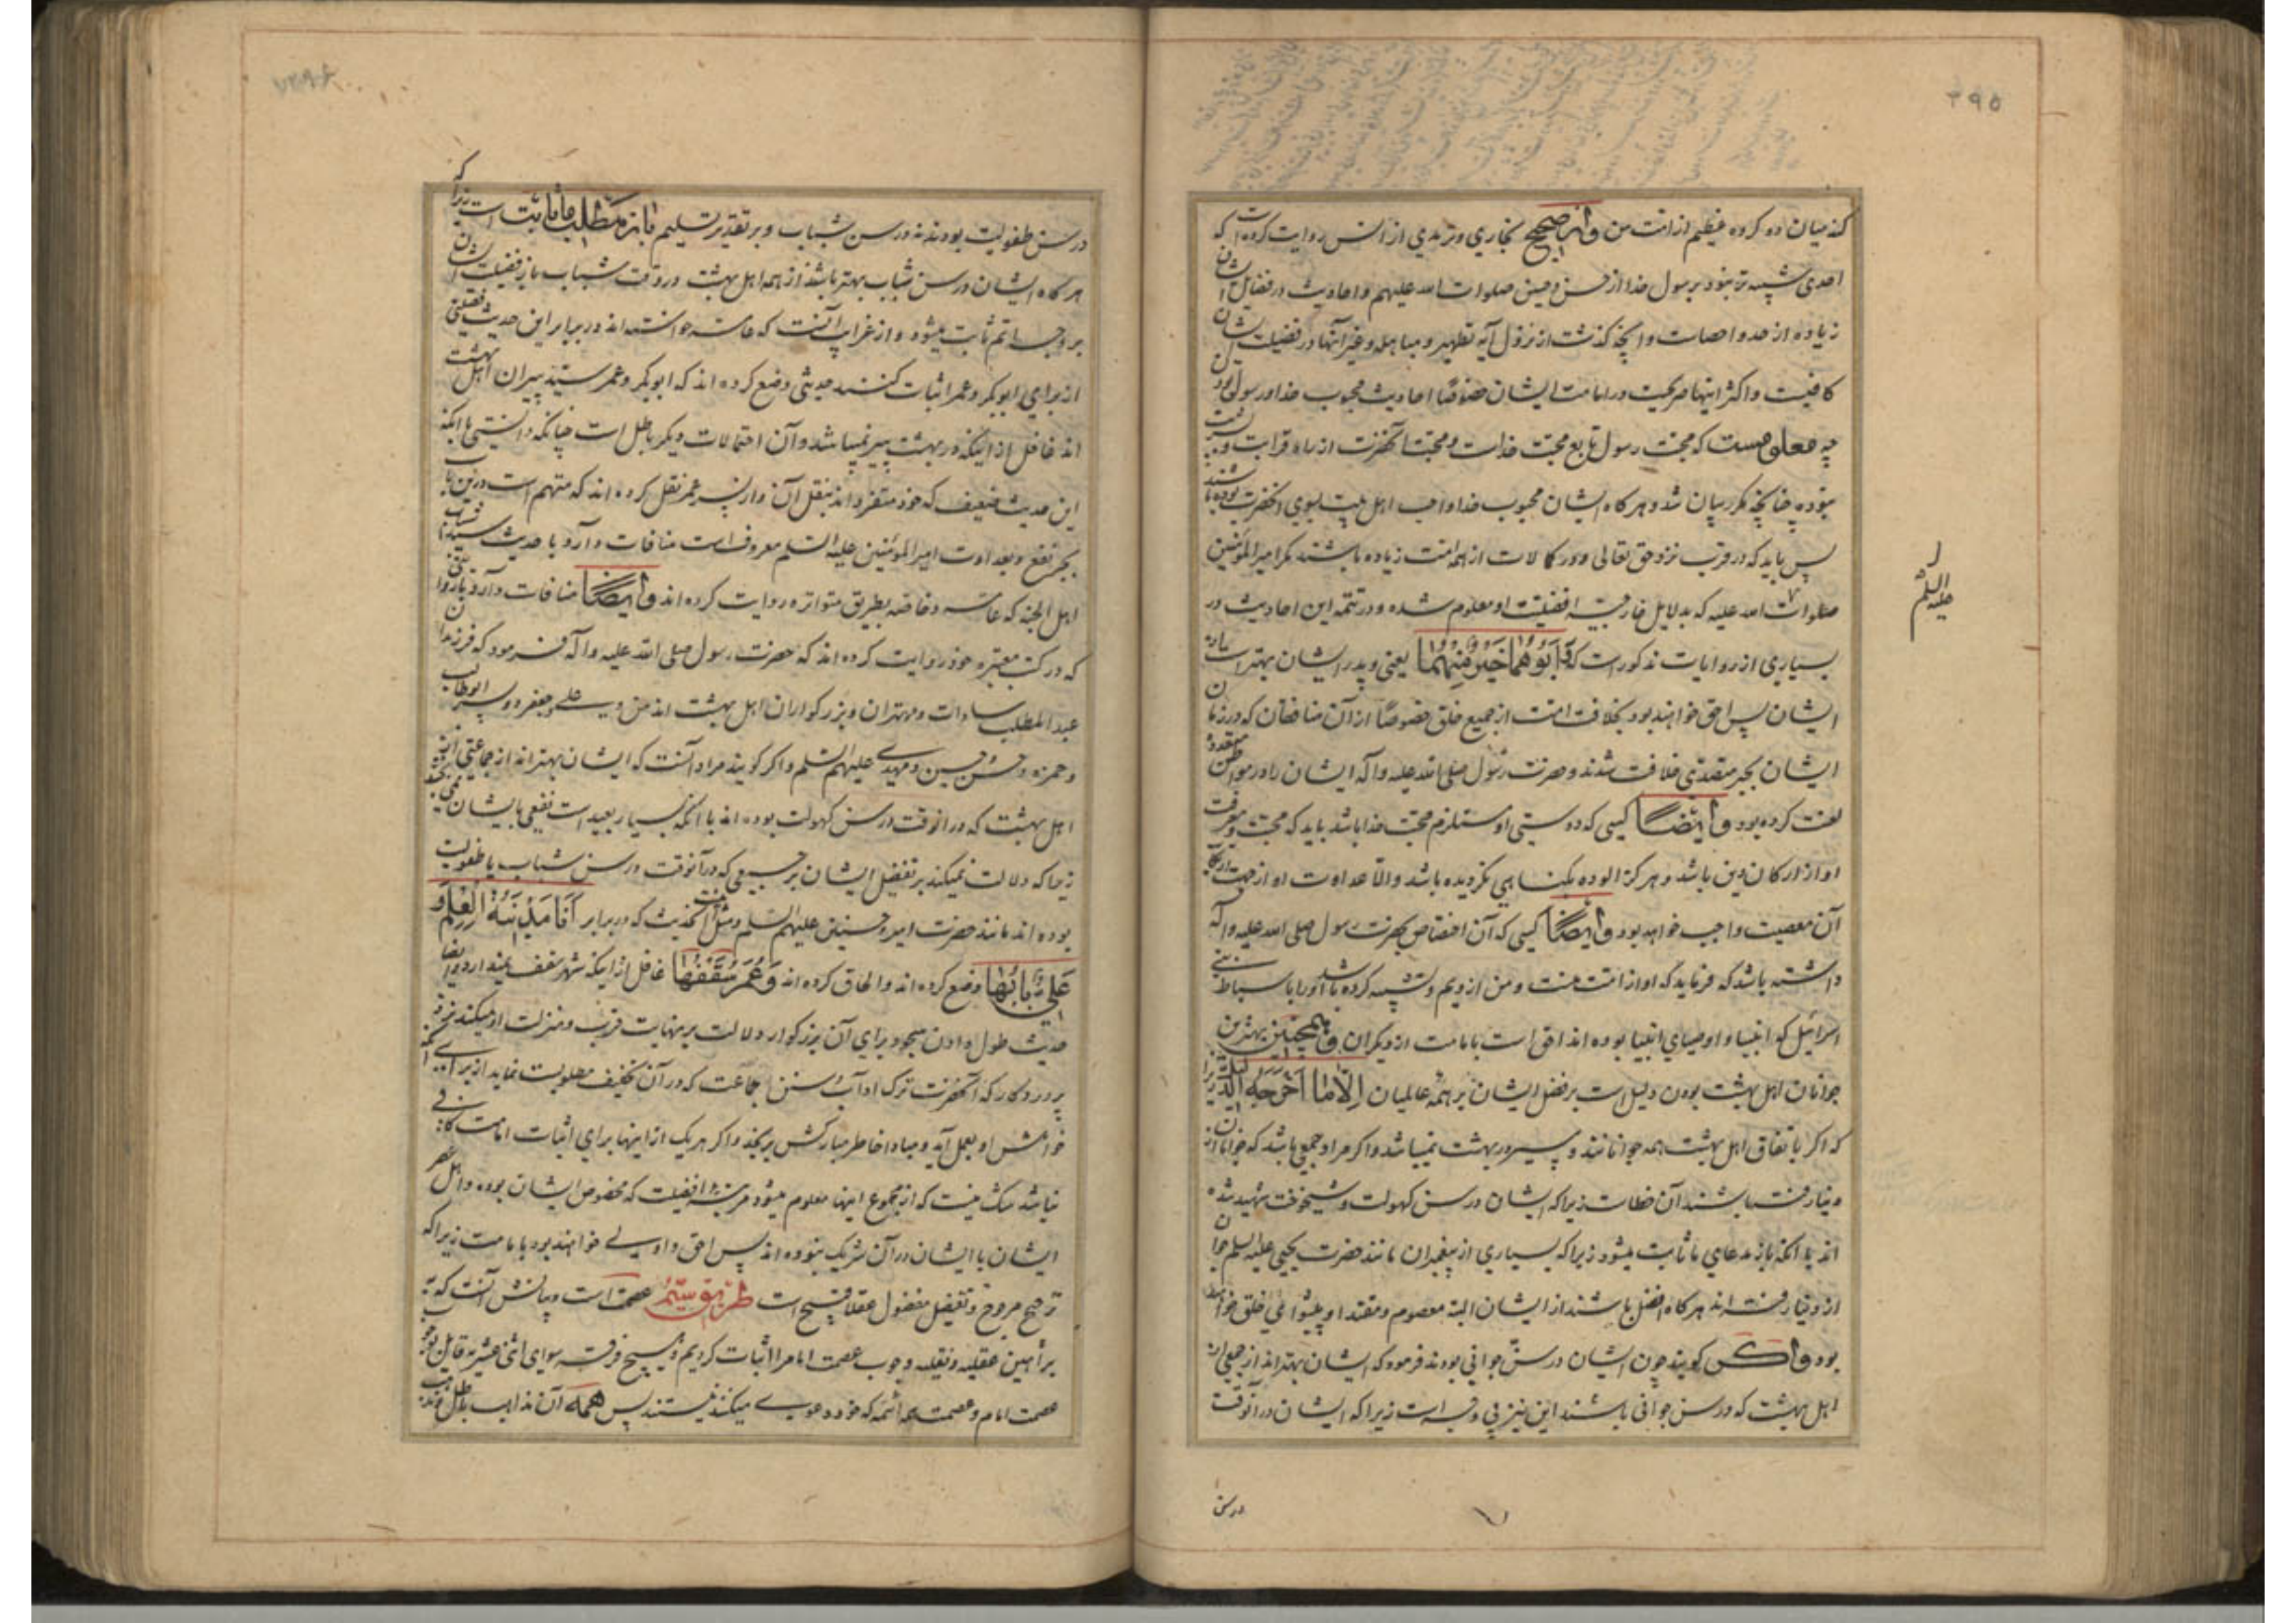 ۲۹۵
کند میان دو کروه عظیم از امت من و از صحیح بخاری و ترمدی از انس روایت کرده است که
احدی شبیه تر نبود برسول خدا از حسن و حسین صلوات الله علیهم و احادیث در فضایل ایشان
زیاده از حد و احصاست و آنچه کذشت از نزول آیه تطهیر و مباهله و غیر آنها در فضیلت ایشان
کافیست و اکثر اینها صریحست در امامت ایشان خصوصًا احادیث محبوب خدا و رسول بودن
چه معلومست که محبت رسول تابع محبت خداست و محبت آنحضرت از راه قرابت و
نبوده چنانچه مکرر بیان شد و هر کاه ایشان محبوب خدا و احب اهل بیت بسوی آنحضرت بوده باشند
پس باید که در قرب نزد حق تعالی و در کمالات از همه امت زیاده باشند مکر امیر المؤمنین
صلوات الله علیه که بدلایل خارجیه افضلیت او معلوم شده و در تتمه این احادیث در
علیه السلم
بسیاری از روایات مذکور است که وَ اَبُوهُما خَیرٌ مِنهُمَا یعنی و پدر ایشان بهتر است از
ایشان پس احق خواهند بود بخلافت امت از جمیع خلق خصوصًا از آن منافقان که در زمان
ایشان بجبر متصدی خلافت شدند و حضرت رسول صلی الله علیه و آله ایشان را در مواطن متعدده
لعنت کرده بود و ایضًا کسی که دوستی او مستلزم محبت خدا باشد باید که محبت و معرفت
او از ارکان دین باشد و هرکز الوده بکناهی نکردیده باشد والّا عداوت او از جهت ارتکاب
آن معصیت واجب خواهد بود و ایضًا کسی که آن اختصاص بحضرت رسول صلی الله علیه و آله
داشته باشد که فرماید که او از امت منست و من از ویم و تشبیه کرده باشد او را باسباط بنی
اسرائیل که انبیا و اوصیای انبیا بوده اند احق است بامامت از دیکران و همچنین بهترین
جوانان اهل بهشت بودن دلیل است بر فضل ایشان بر همه عالمیان اِلّا ما اَخرَجَهُ الدَلیل زیرا
که اکر باتفاق اهل بهشت همه جوانانند و پیر در بهشت نمیباشد و اکر مراد جمعی باشد که جوانان از
دنیا رفته باشند آن خطاست زیرا که ایشان در سن کهولت و شیخوخت شهید شده
اند با آنکه باز مدعای ما ثابت میشود زیرا که بسیاری از پیغمبران مانند حضرت یحیی علیه السلم جوان
از دنیا رفته اند هر کاه افضل باشند از ایشان البته معصوم و مقتدا و پیشوای خلق خواهند
بود و اکر کویند چون ایشان در سن جوانی بودند فرمود که ایشان بهتر اند از جمعی از
اهل بهشت که در سن جوانی باشند این نیز بی وجه است زیرا که ایشان در آنوقت
در سن
در سن طفولیت بودند نه در سن شباب و بر تقدیر تسلیم باز مطلب ما ثابت است زیرا که
هر کاه ایشان در سن شباب بهتر باشند از همه اهل بهشت در وقت شباب باز فضیلت ایشان
بر وجه اتم ثابت میشود و از غرایب آنست که عامه خواسته اند در برابر این حدیث فضیلتی
از برای ابو بکر و عمر اثبات کنند حدیثی وضع کرده اند که ابو بکر و عمر سید پیران اهل بهشت
اند غافل از اینکه در بهشت پیر نمیباشد و آن احتمالات دیکر باطل است چنانکه دانستی با آنکه
این حدیث ضعیف که خود متفرد اند بنقل آن و از پسر عمر نقل کرده اند که متهم است درین باب
بجر نفع و بعداوت امیر المؤمنین علیه السلم معروف است منافات دارد با حدیث سیدا شباب
اهل الجنه که عامه و خاصه بطریق متواتره روایت کرده اند و ایضًا منافات دارد با روایتی
که در کتب معتبره خود روایت کرده اند که حضرت رسول صلی الله علیه و آله فرمود که فرزندان
عبد المطلب سادات و مهتران و بزرکواران اهل بهشت اند من و علی و جعفر دو پسر ابو طالب
و حمزه و حسن و حسین و مهدی علیهم السلم و اکر کویند مراد آنست که ایشان بهتر اند از جماعتی از
اهل بهشت که در آنوقت در سن کهولت بوده اند با آنکه بسیار بعید است نفعی بایشان نمی بخشد
زیرا که دلالت نمیکند بر تفضیل ایشان بر جمعی که در آنوقت در سن شباب یا طفولیت
بوده اند مانند حضرت امیر و حسنین علیهم السلم و مثل آن حدیث که در برابر اَنَا مَدینَةُ العِلمِ وَ
عَلِیٌّ بابُهَا وضع کرده اند و الحاق کرده اند وَ عُمَر سَقفُهَا غافل از اینکه شهر سقف نمیدارد و ایضا
حدیث طول دادن سجود برای آن بزرکوار دلالت بر نهایت قرب و منزلت او میکند نزد
پروردکار که آنحضرت ترک اداب و سنن جماعت که در آن تخفیف مطلوبست نماید از برای آنکه
خواهش او بعمل آید و مبادا خاطر مبارکش برنجد و اکر هر یک از اینها برای اثبات امامت کافی
نباشد شک نیست که از مجموع اینها معلوم میشود مرتبه افضلیت که مخصوص ایشان بوده و اهل عصر
ایشان با ایشان در آن شریک نبوده اند پس احق و اولی خواهند بود بامامت زیرا که
ترجیح مرجوح و تفضیل مفضول عقلا قبیح است طریق سیّم عصمت است و بیانش آنست که به
براهین عقلیه و نقلیه وجوب عصمت امام را اثبات کردیم و هیچ فرقه سوای اثنی عشریه قایل بوجوب
عصمت امام و عصمت ائمه که خود دعوی میکنند نیستند پس همه آن مذاهب باطل